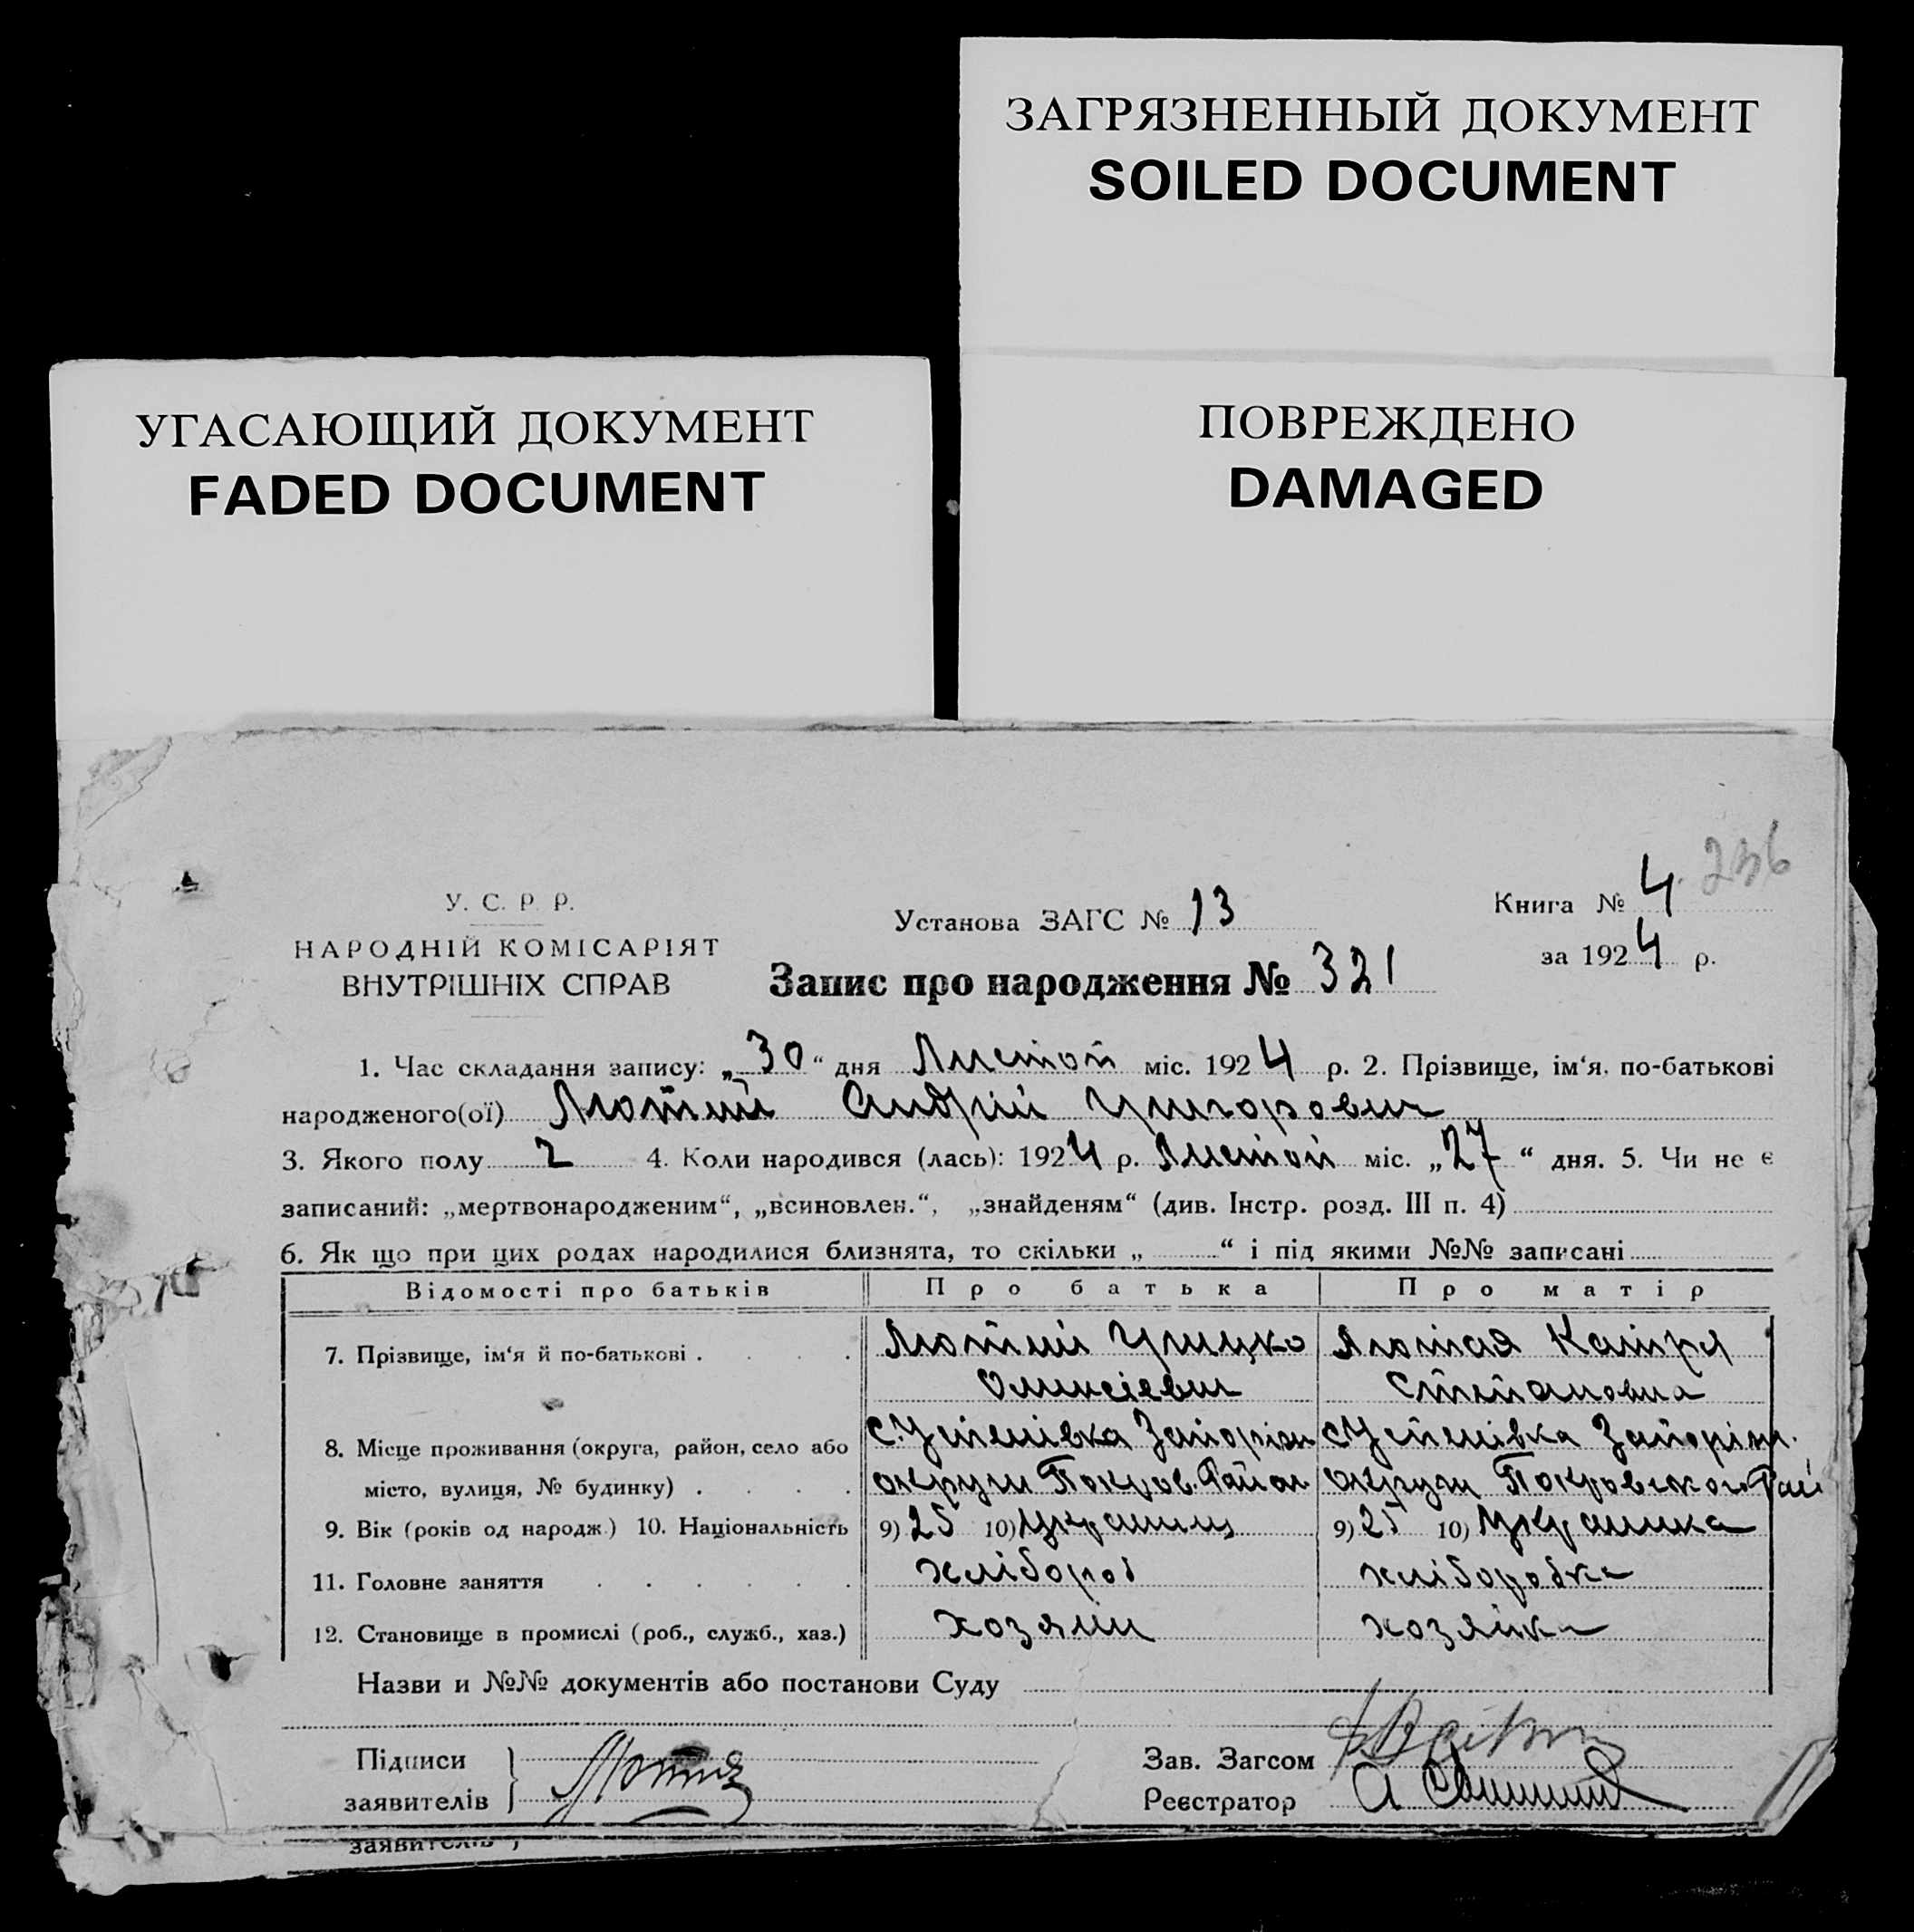 ЗАГРЯЗНЕННЫЙ ДОКУМЕНТ
SOILED DOCUMENT
УГАСАЮЩИЙ ДОКУМЕНТ
FADED DOCUMENT
ПОВРЕЖДЕНО
DAMAGED
236
У. С. Р. Р.
НАРОДНІЙ КОМІСАРІЯТ
ВНУТРІШНІХ СПРАВ
Установа ЗАГС № 13
Книга № 4
за 1924 р.
Запис про народження № 321
1. Час складання запису: „30“ дня Листоп міс. 1924 р. 2. Прізвище, ім‘я, по-батькові
народженого(ої) Лютий Андрій Григорович
3. Якого полу 2 4. Коли народився (лась): 1924 р. Листоп міс. „27“ дня. 5. Чи не є
записаний: „мертвонародженим“, „всиновлен.“, „знайденям“ (див. Інстр. розд. III п. 4)
6. Як що при цих родах народилися близнята, то скільки „ “ і під якими №№ записані
Відомості про батьків Про батька Про матір
7. Прізвище, ім‘я й по-батькові . . . . Лютий Грицко Лютая Катря
Олексієвич Степановна
8. Місце проживання (округа, район, село або с. Успенівка Запоріж с Успенівка Запоріж.
місто, вулиця, № будинку) . . . . округи Покров. Район округи Покровского Рай
9. Вік (років од народж.) 10. Національність 9) 25 10) Украинц 9) 25 10) Украинка
11. Головне заняття . . . . . . хлібороб хліборобка
12. Становище в промислі (роб., служб., хаз.) хозяин хозяйка
Назви и №№ документів або постанови Суду
Підписи
заявителів } Лютий
Зав. Загсом
Реєстратор А
заявителів